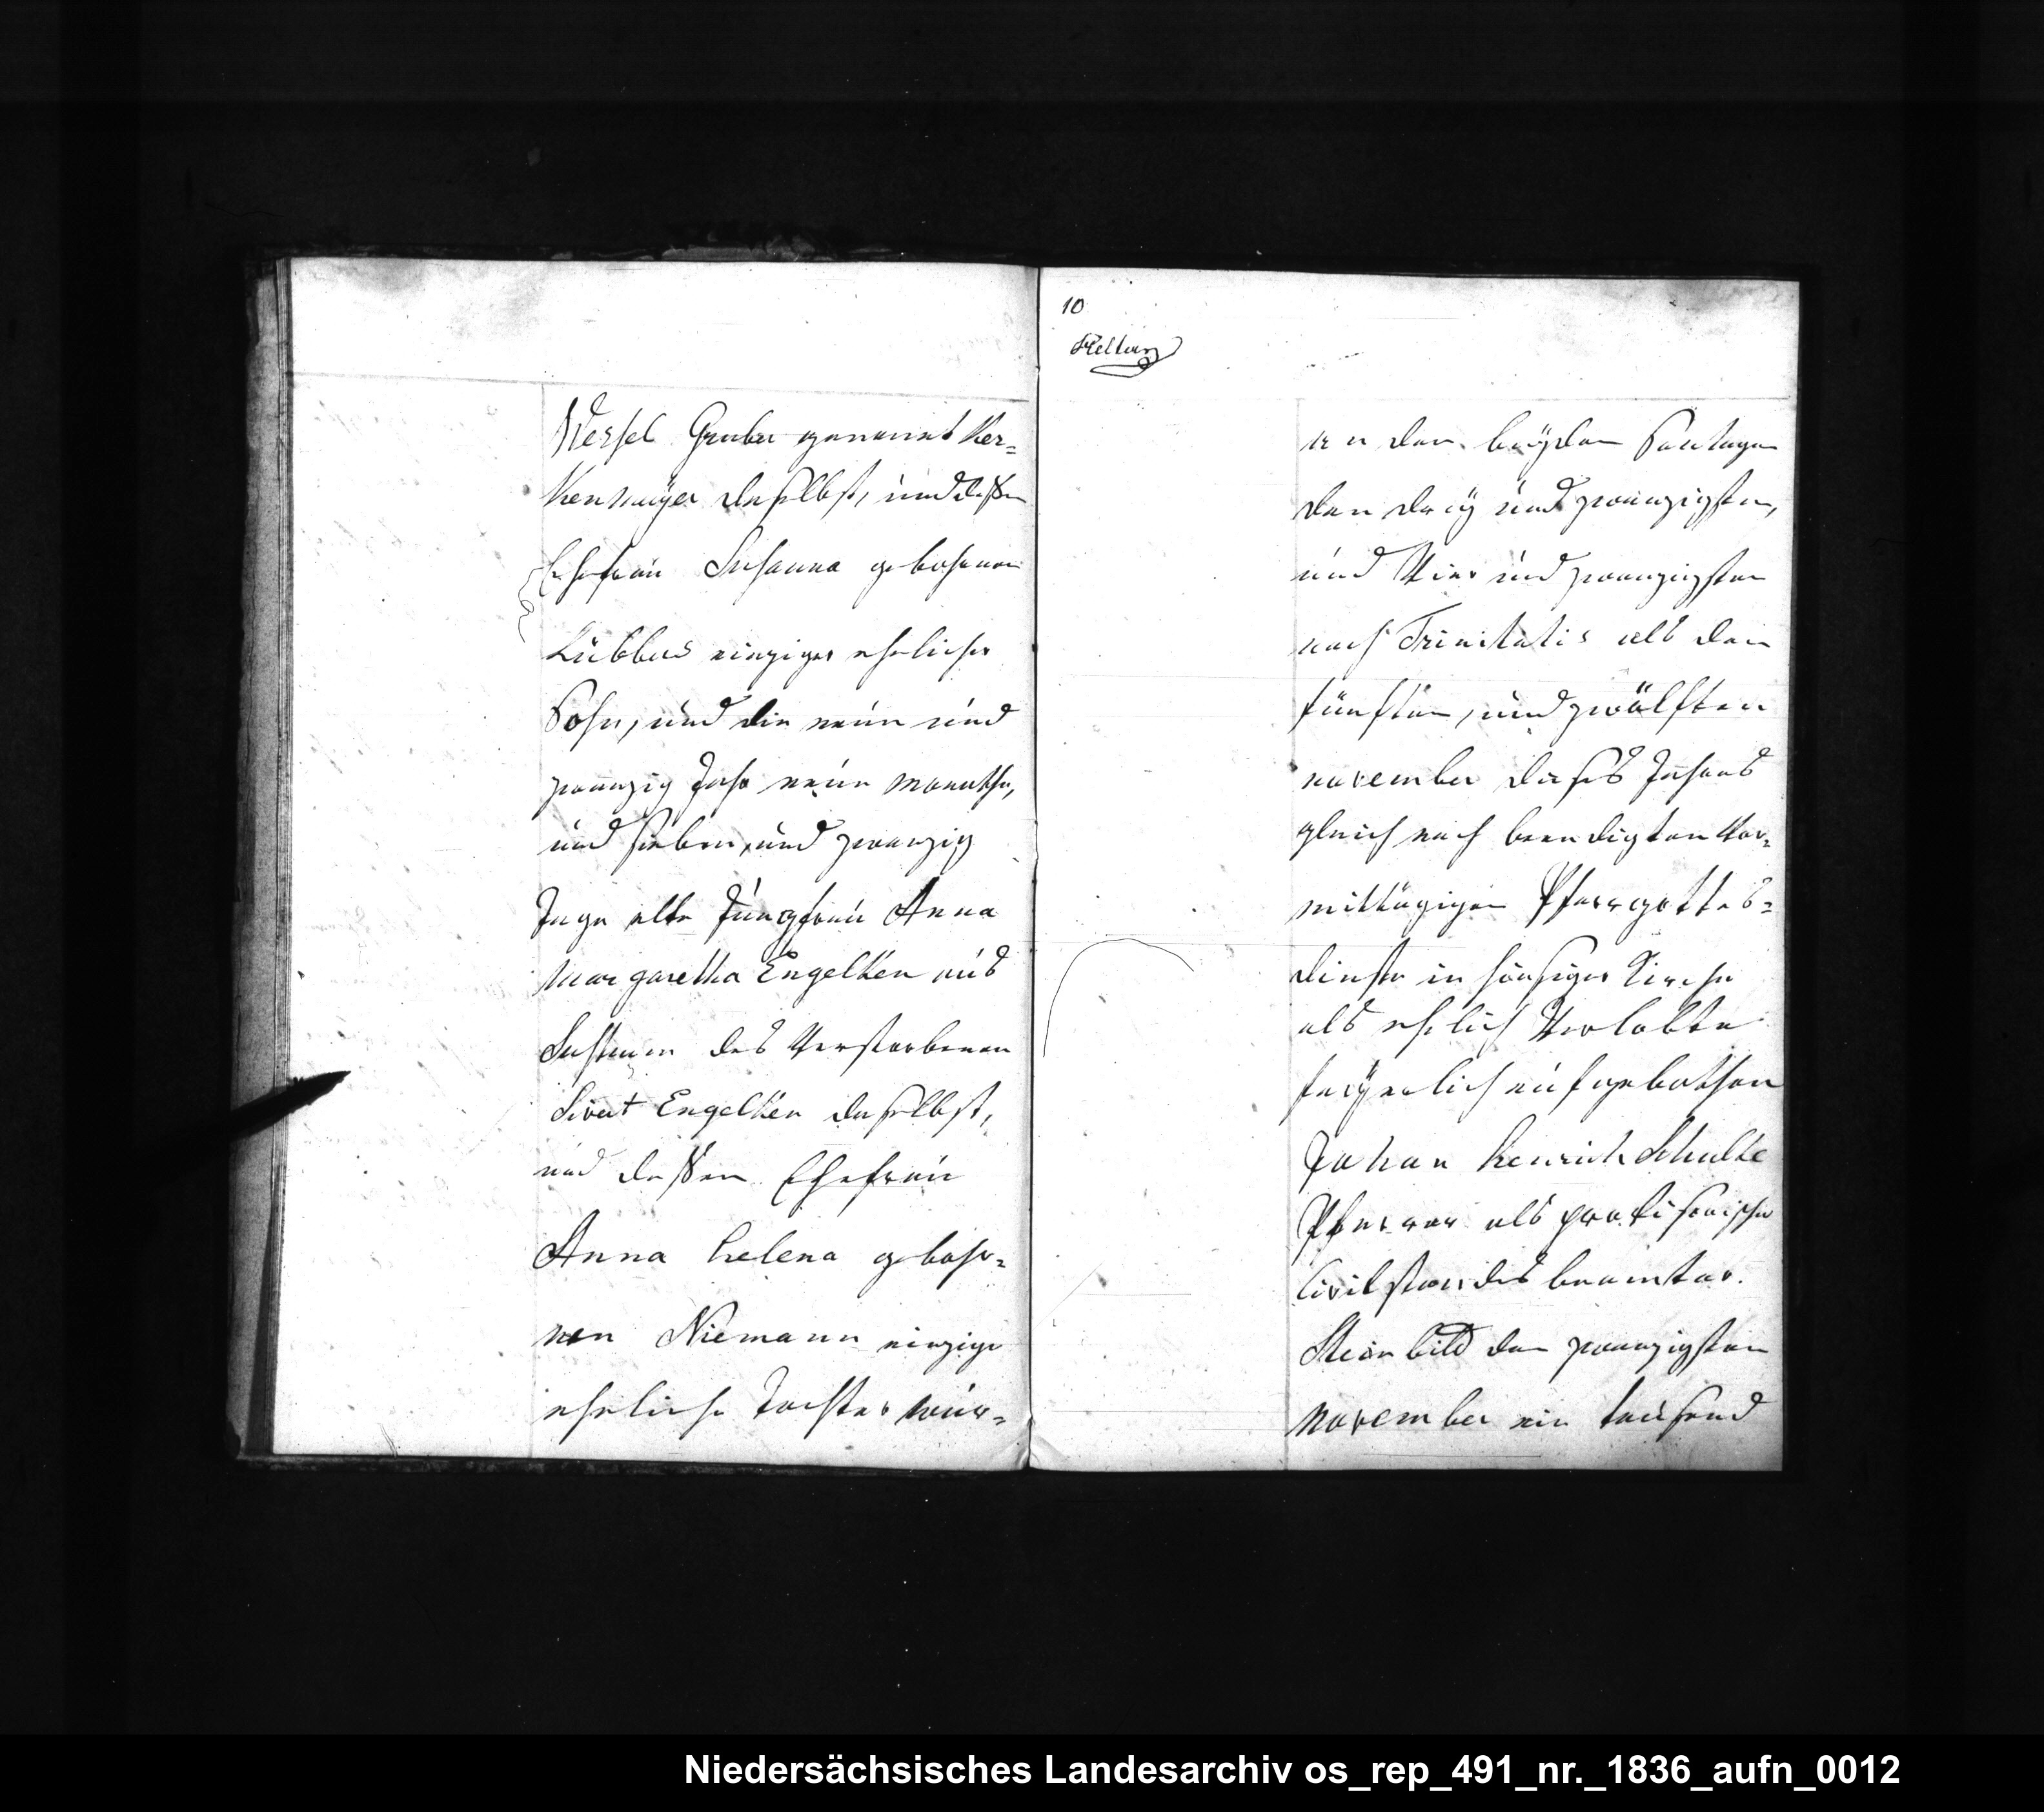 Wessel Gruber genannt Ker=
Kenmeÿer daselbst, und deßen
Ehefrau Susanna gebohrnen
Lübbers einziger ehelicher
Sohn, und die neun und
zwanzig Jahr neun Monathe,
und sieben und zwanzig
Tage alte Jungfrau Anna
Margaretha Engelken aus
Sustrum des Verstorbenen
Sivert Engelken daselbst,
und deßen Ehefrau
Anna Helena gebohr=
nen Niemann einzige
eheliche Tochter wur=
10
an den beÿden Sontagen
den dreÿ und zwanzigsten,
und Vier und zwanzigsten
nach Trinitatis als den
fünften, und zwölften
november dieses Jahres
gleich nach beendigten Vor=
mittägigen Pfarrgottes=
dienste in hiesiger Kirche
als ehelich Verlobte
feÿerlich aufgebothen
Johan Henrich Schulte
Pfarrer als provisorischer
Civilstandes beamter.
Steinbild den zwanzigsten
November ein tausend
Niedersächsisches Landesarchiv os_rep_491_nr._1836_aufn_0012